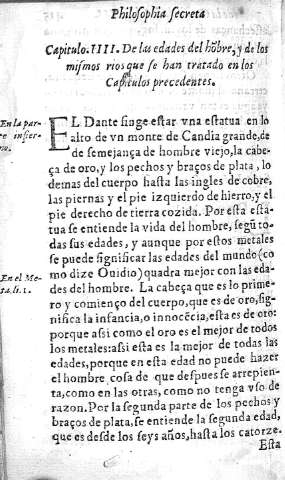 Philosophia secreta
Capitulo.IIII. De las edades del hõbre, y de los
mismos rios que se han tratado en los
Capitulos precedentes.
En la par-
te infier-
no.
EL Dante finge estar vna estatua en lo
alto de vn monte de Candia grande, de
de semejança de hombre viejo, la cabe-
ça de oro, y los pechos y braços de plata, lo
demas del cuerpo hasta las ingles de cobre,
las piernas y el pie izquierdo de hierro, y el
pie derecho de tierra cozida. Por esta esta-
tua se entiende la vida del hombre, segũ to-
das sus edades, y aunque por estos metales
se puede significar las edades del mundo (co
En el Me-
ta.li.1.
mo dize Ouidio) quadra mejor con las eda-
des del hombre. La cabeça que es lo prime-
ro y comienço del cuerpo, que es de oro, sig-
nifica la infancia, o innocẽcia, esta es de oro:
porque assi como el oro es el mejor de todos
los metales: assi esta es la mejor de todas las
edades, porque en esta edad no puede hazer
el hombre cosa de que despues se arrepien-
ta, como en las otras, como no tenga vso de
razon. Por la segunda parte de los pechos y
braços de plata, se entiende la segunda edad,
que es desde los seys años, hasta los catorze.
Esta